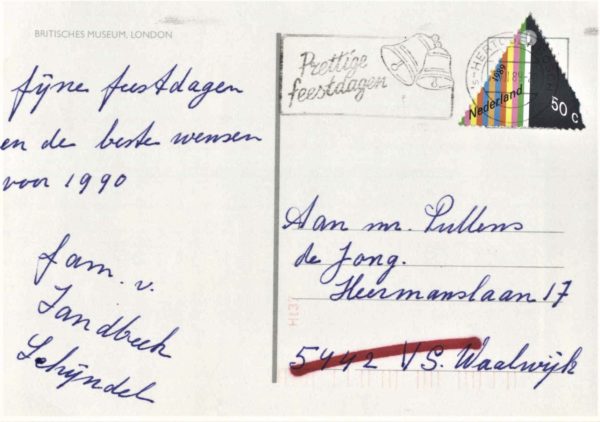 BRITISCHES MUSEUM, LONDON
Prettige
feestdagen
1989
Nederland
50 c
fijne feestdagen
en de beste wensen
voor 1990
fam. v.
Zandbeek
Schijndel
Aan mr. Pullens
de Jong.
Heermanslaan 17
5442 VS. Waalwijk